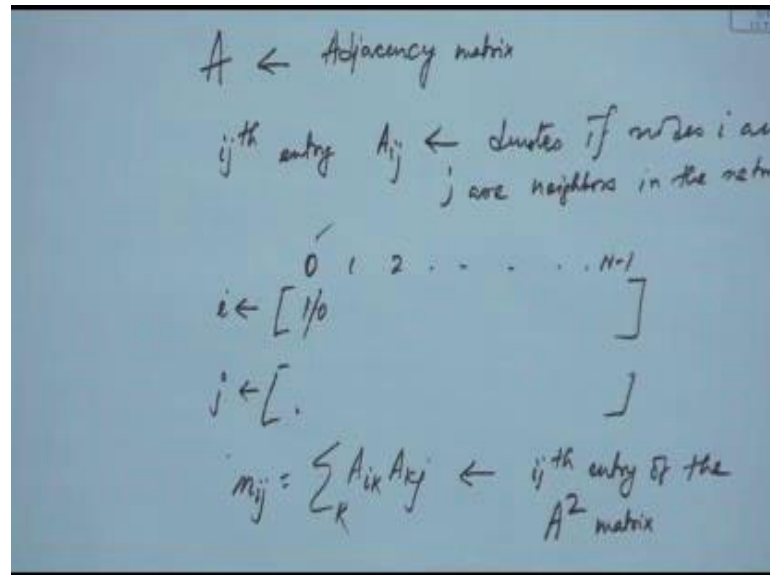 A ← Adjacency matrix
ij th entry A_ij ← denotes if nodes i an
j are neighbors in the netw
0 1 2 . . . . . . N-1
i ← [ 1/0 ]
j ← [ . ]
n_ij = ∑_k A_ik A_kj ← ij th entry of the
A² matrix